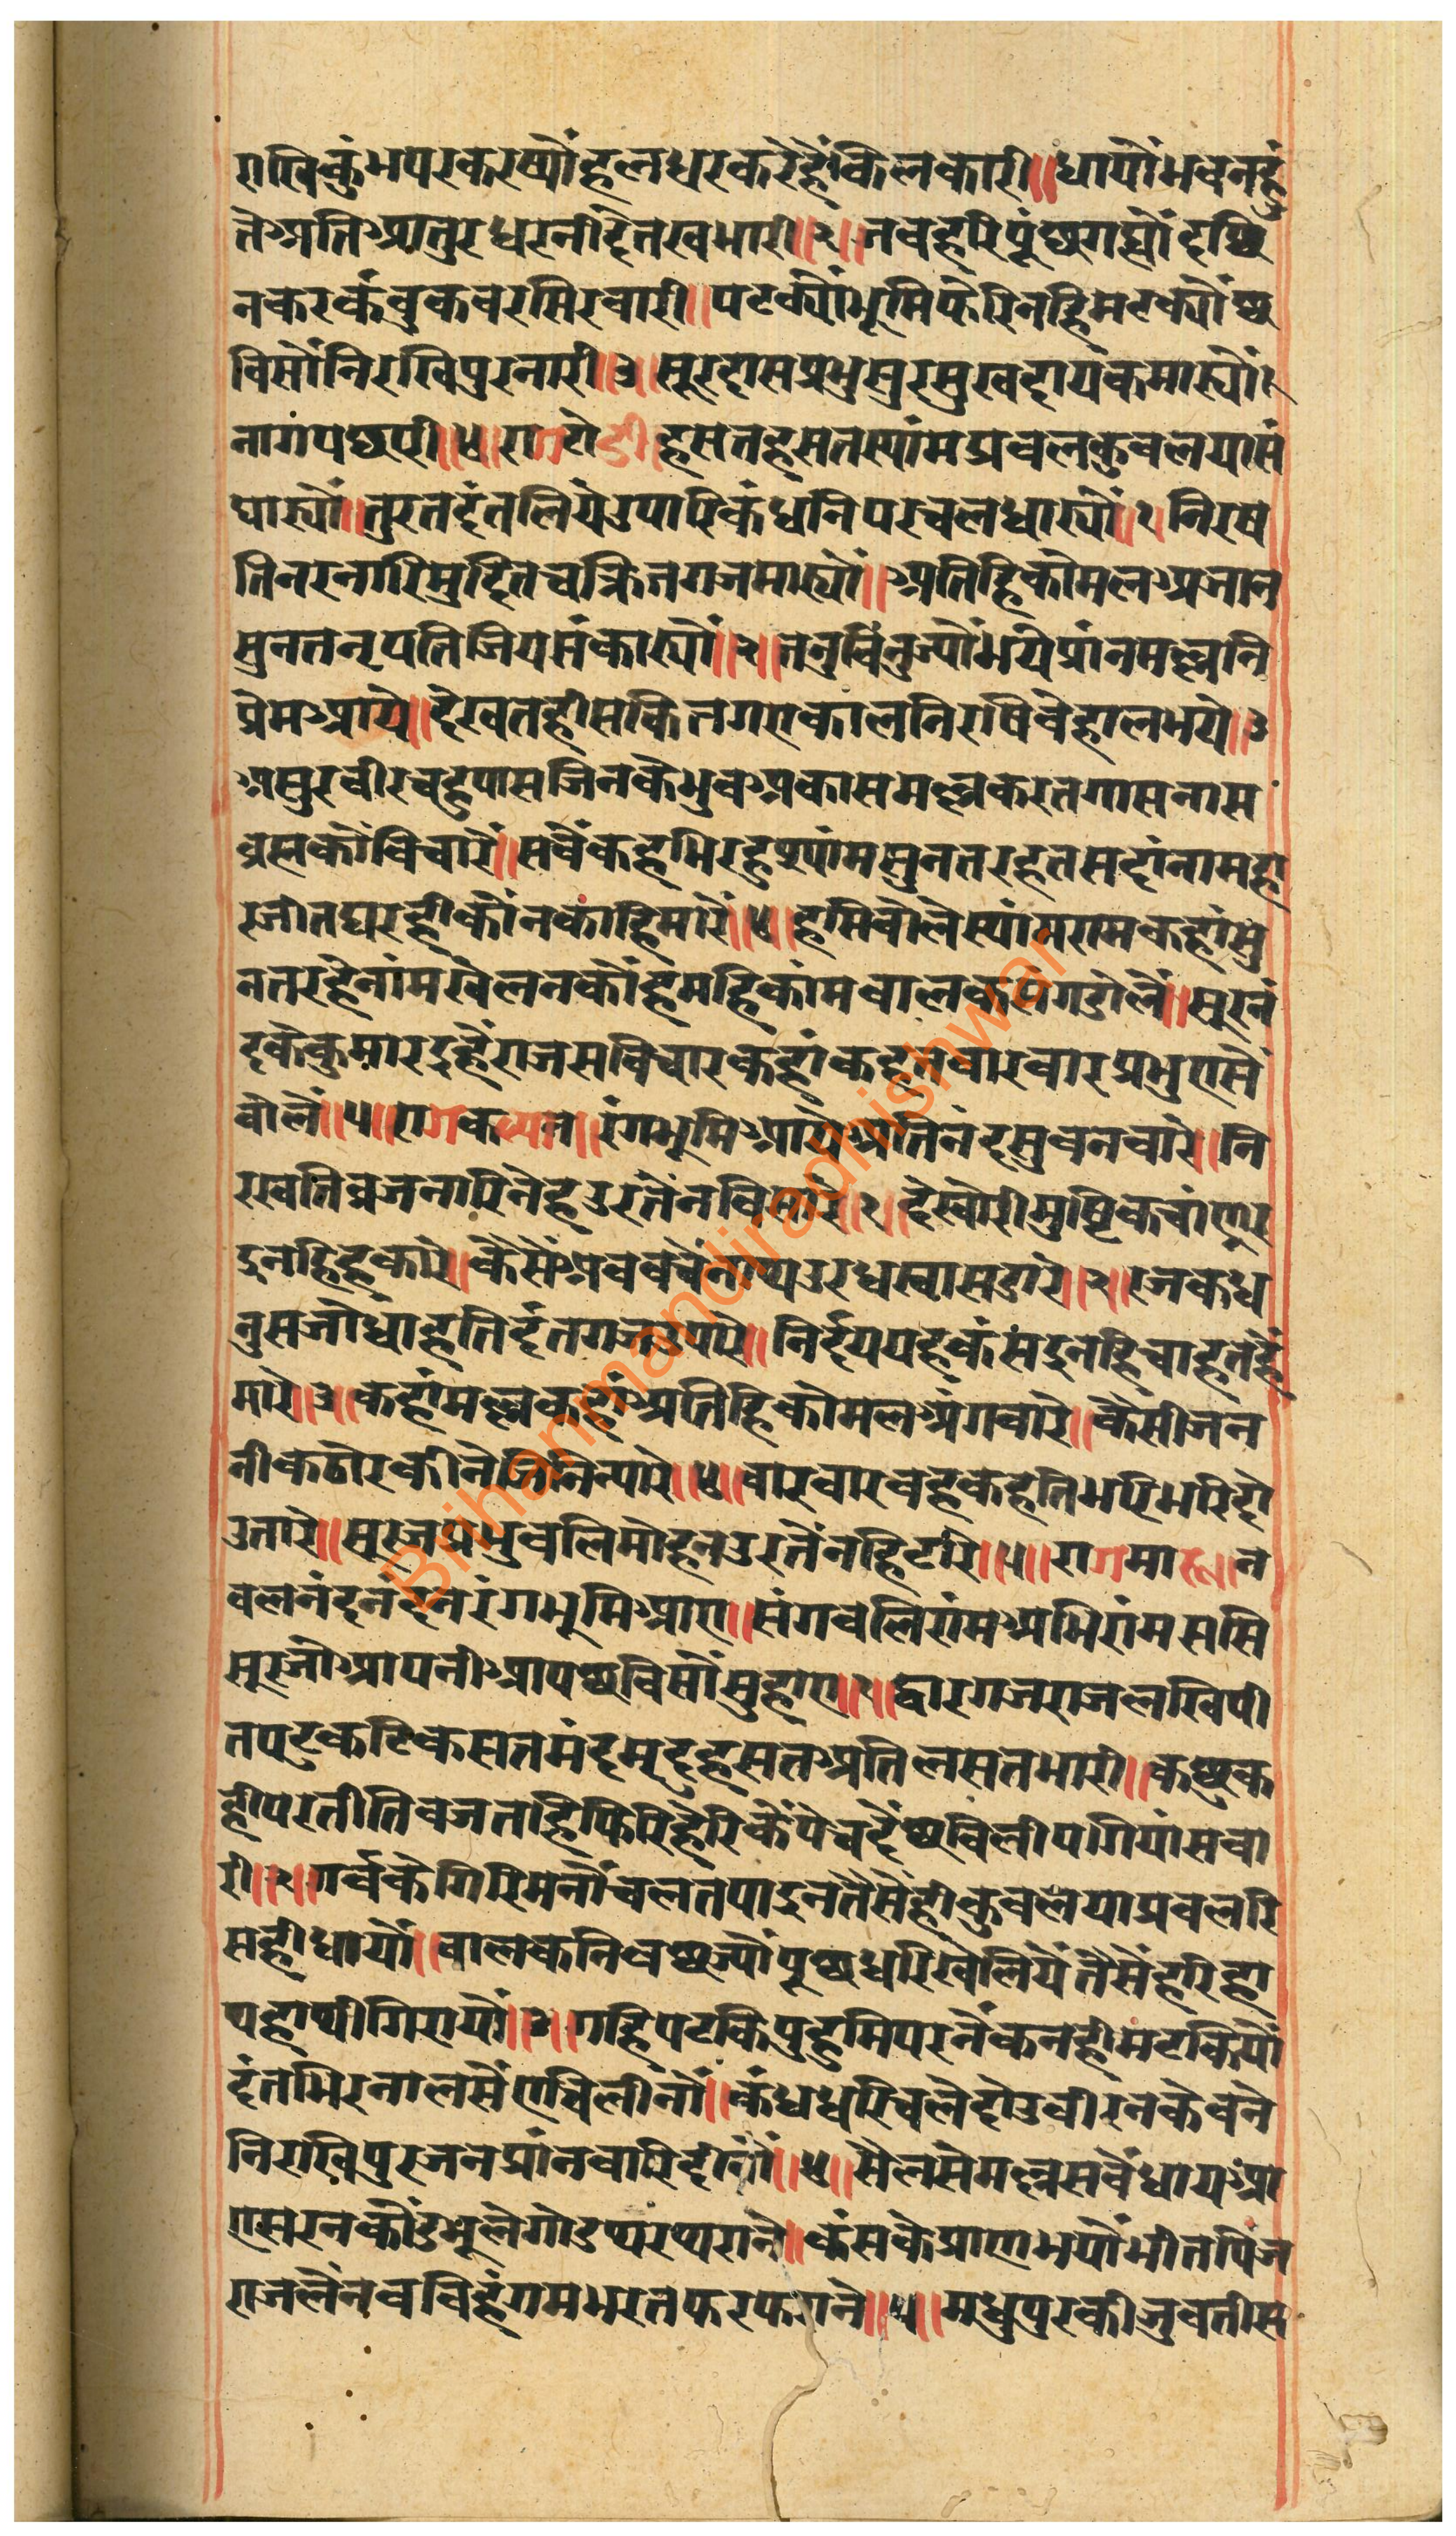 राखिकुंभपरकरष्यौंहलधरकरैहैंकिलकारी॥धायौंभवनहुं
तेअतिआतुरधरनीदैंतखभारी॥२॥तबहरिपूंछगह्यौंदछि
नकरकंबुकबरसिरवारी॥पटक्यौंभूमिफेरिनहिमटक्यौंछ
बिसौंनिरखिपुरनारी॥३॥सूरदासप्रभुसुरसुखदायकमास्यौं
नागपछारी॥४॥रागटोडी॥हसतहसतस्यांमप्रबलकुबलयासं
घास्यौं॥तुरतदंतलियेउपारिकंधनिपरचलधास्यौं॥१॥निरष
तिनरनारिमुदितचक्रितगजमास्यौं॥अतिहिकोमलअजान
सुनतनृपतिजियसंकास्यौं॥२॥तनुबिनुज्यौंभयेप्रांनमल्लनि
प्रेमआये॥देखतहीसकितगएकालनिरषिबेहालभये॥३
असुरबीरचहुपासजिनकेभुवअकासमल्लकरतगासनास
व्रसकौंविचारैं॥सबैंकहभिरहुश्यांमसुनतरहतसदांनामहा
रजीतघरहीकौंनकाहिमारैं॥४॥हसिबोलेस्यांमरामकहांसु
नतरहेनांमखेलनकौंहमहिकांमबालकसंगडोलैं॥सूरनं
दकेकुमारइहैंराजसविचारकहांकहतबारबारप्रभुएसैं
बोलैं॥५॥रागकल्यान॥रंगभूमिआयेअतिनंदसुवनबारे॥नि
रखतिव्रजनारिनेहउरतेंनबिसारे॥१॥देखोरीमुष्टिकचांणूर
इनहिहकारे॥कैसैंअबबचैंनाथउरधस्वासडारे॥२॥रजकध
नुसजोधाहतिदंतगजउपारे॥निर्दययहकंसइनहिचाहतहैं
मारे॥३॥कहांमल्लकहांअतिहिकोमलअंगबारे॥कैसीजन
नीकठोरकीनेजिनिन्यारे॥४॥बारबारबहकहेतिभरिभरिदो
उतारे॥सूरजप्रभुबलिमोहनउरतेंनहिटारे॥५॥रागमारू॥न
वलनंदनंदनरंगभूमिआए॥संगबलिरांमअभिरांमससि
सूरजौआपनीआपछबिसौंसुहाए॥१॥द्वारगजराजलखिपी
तपटुकटिकसतमंदमृदुहसतअतिलसतभारी॥कछुक
हीपरतीतिबजताहिफिरिहेरिकैंपेचदैंछबिलीपगियांसवा
री॥२॥गर्बकेगिरिमनौंचलतपाइनतैसेहीकुबलयाप्रबलरि
सहीधायौं॥बालकनिबछज्यौंपूछधरिखेलियेंतैसैंहरिहा
थहाथीगिरायौं॥३॥गहिपटकिपुहुमिपरनैंकनहीमटकियौ
दंतभिरनालसेंएचिलीनौं॥कंधधरिचलेदोउबीरनकेबने
निराखिपुरजनप्रांनवारिदीनौं॥४॥सैलसेमल्लसबैंधायआ
एसरनकौउभूलेगोउथरथराने॥कंसकेप्राणभयौंभीतपिंज
राजलैंनवविहंगममरतफरफराने॥५॥मधुपुरकीजुवतीस